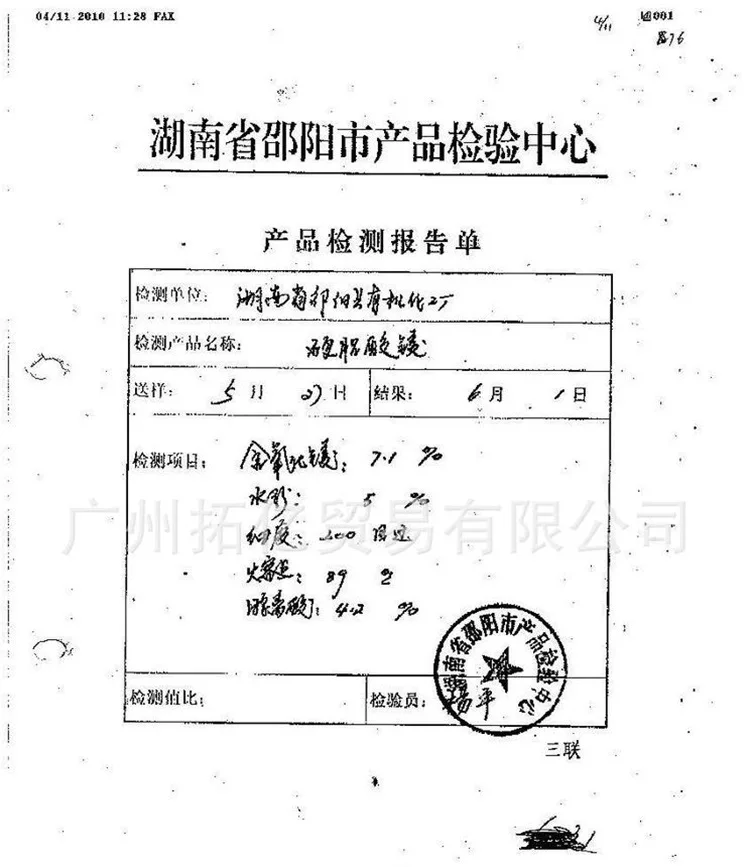 04/11 2010 11:28 FAX
4/11
001
湖南省邵阳市产品检验中心
产品检测报告单
检测单位: 湖南省邵阳县有机化工厂
检测产品名称: 硬脂酸镁
送样: 5月27日 结果: 6月1日
检测项目: 含氧化镁: 7.1 %
水份: 5 %
细度: 200目
熔点: 89
游离酸: 4.2 %
广州拓亿贸易有限公司
湖南省邵阳市产品检验中心
检测值比:
检验员:
三联